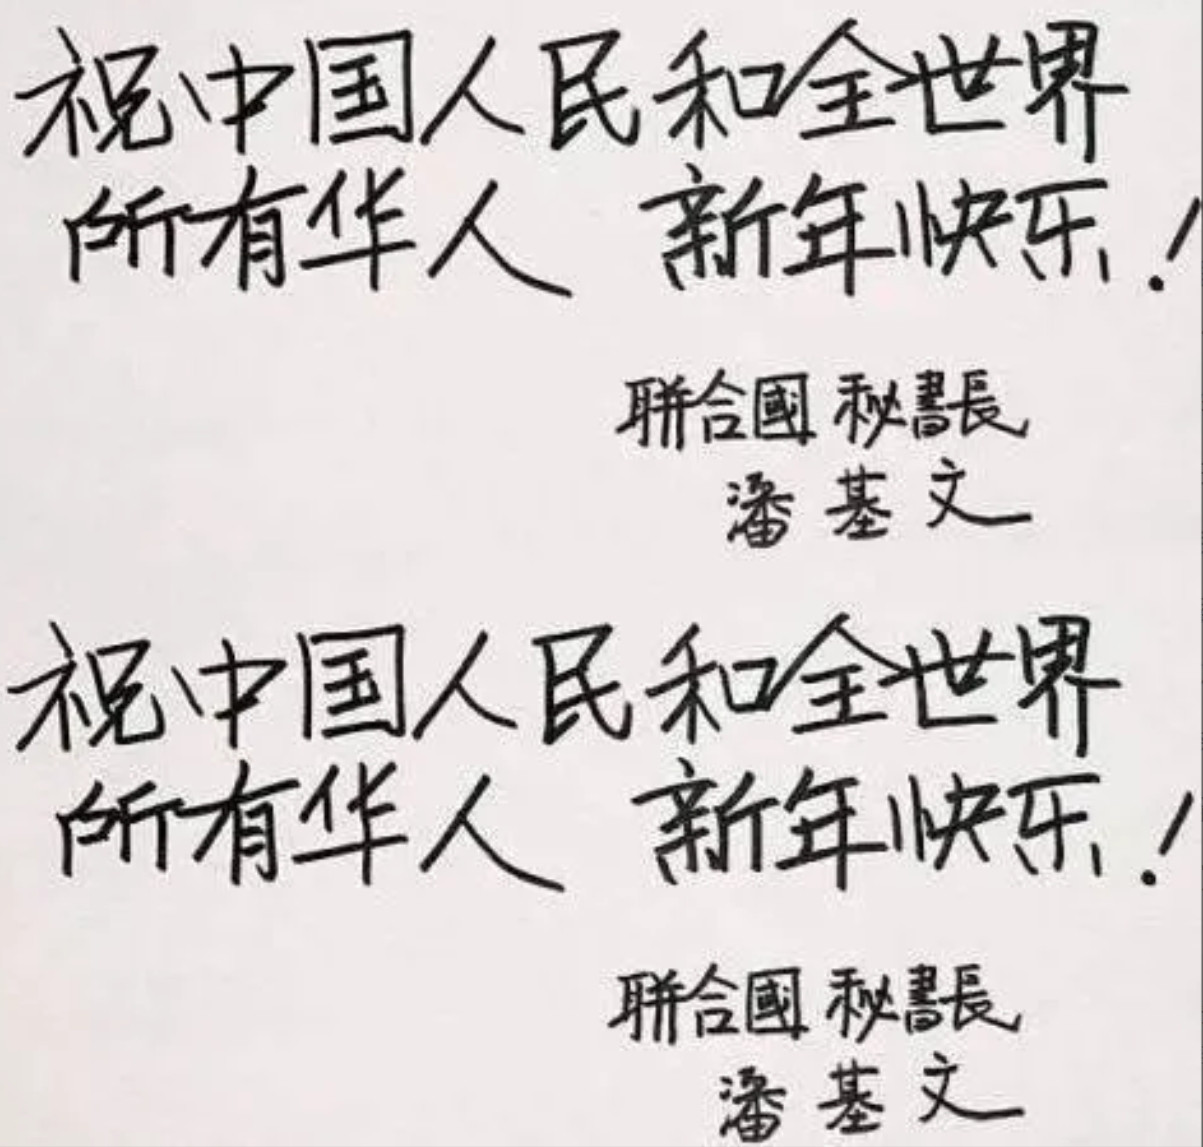 祝中国人民和全世界
所有华人 新年快乐！
聯合國 秘書長
潘基文
祝中国人民和全世界
所有华人 新年快乐！
聯合國 秘書長
潘基文